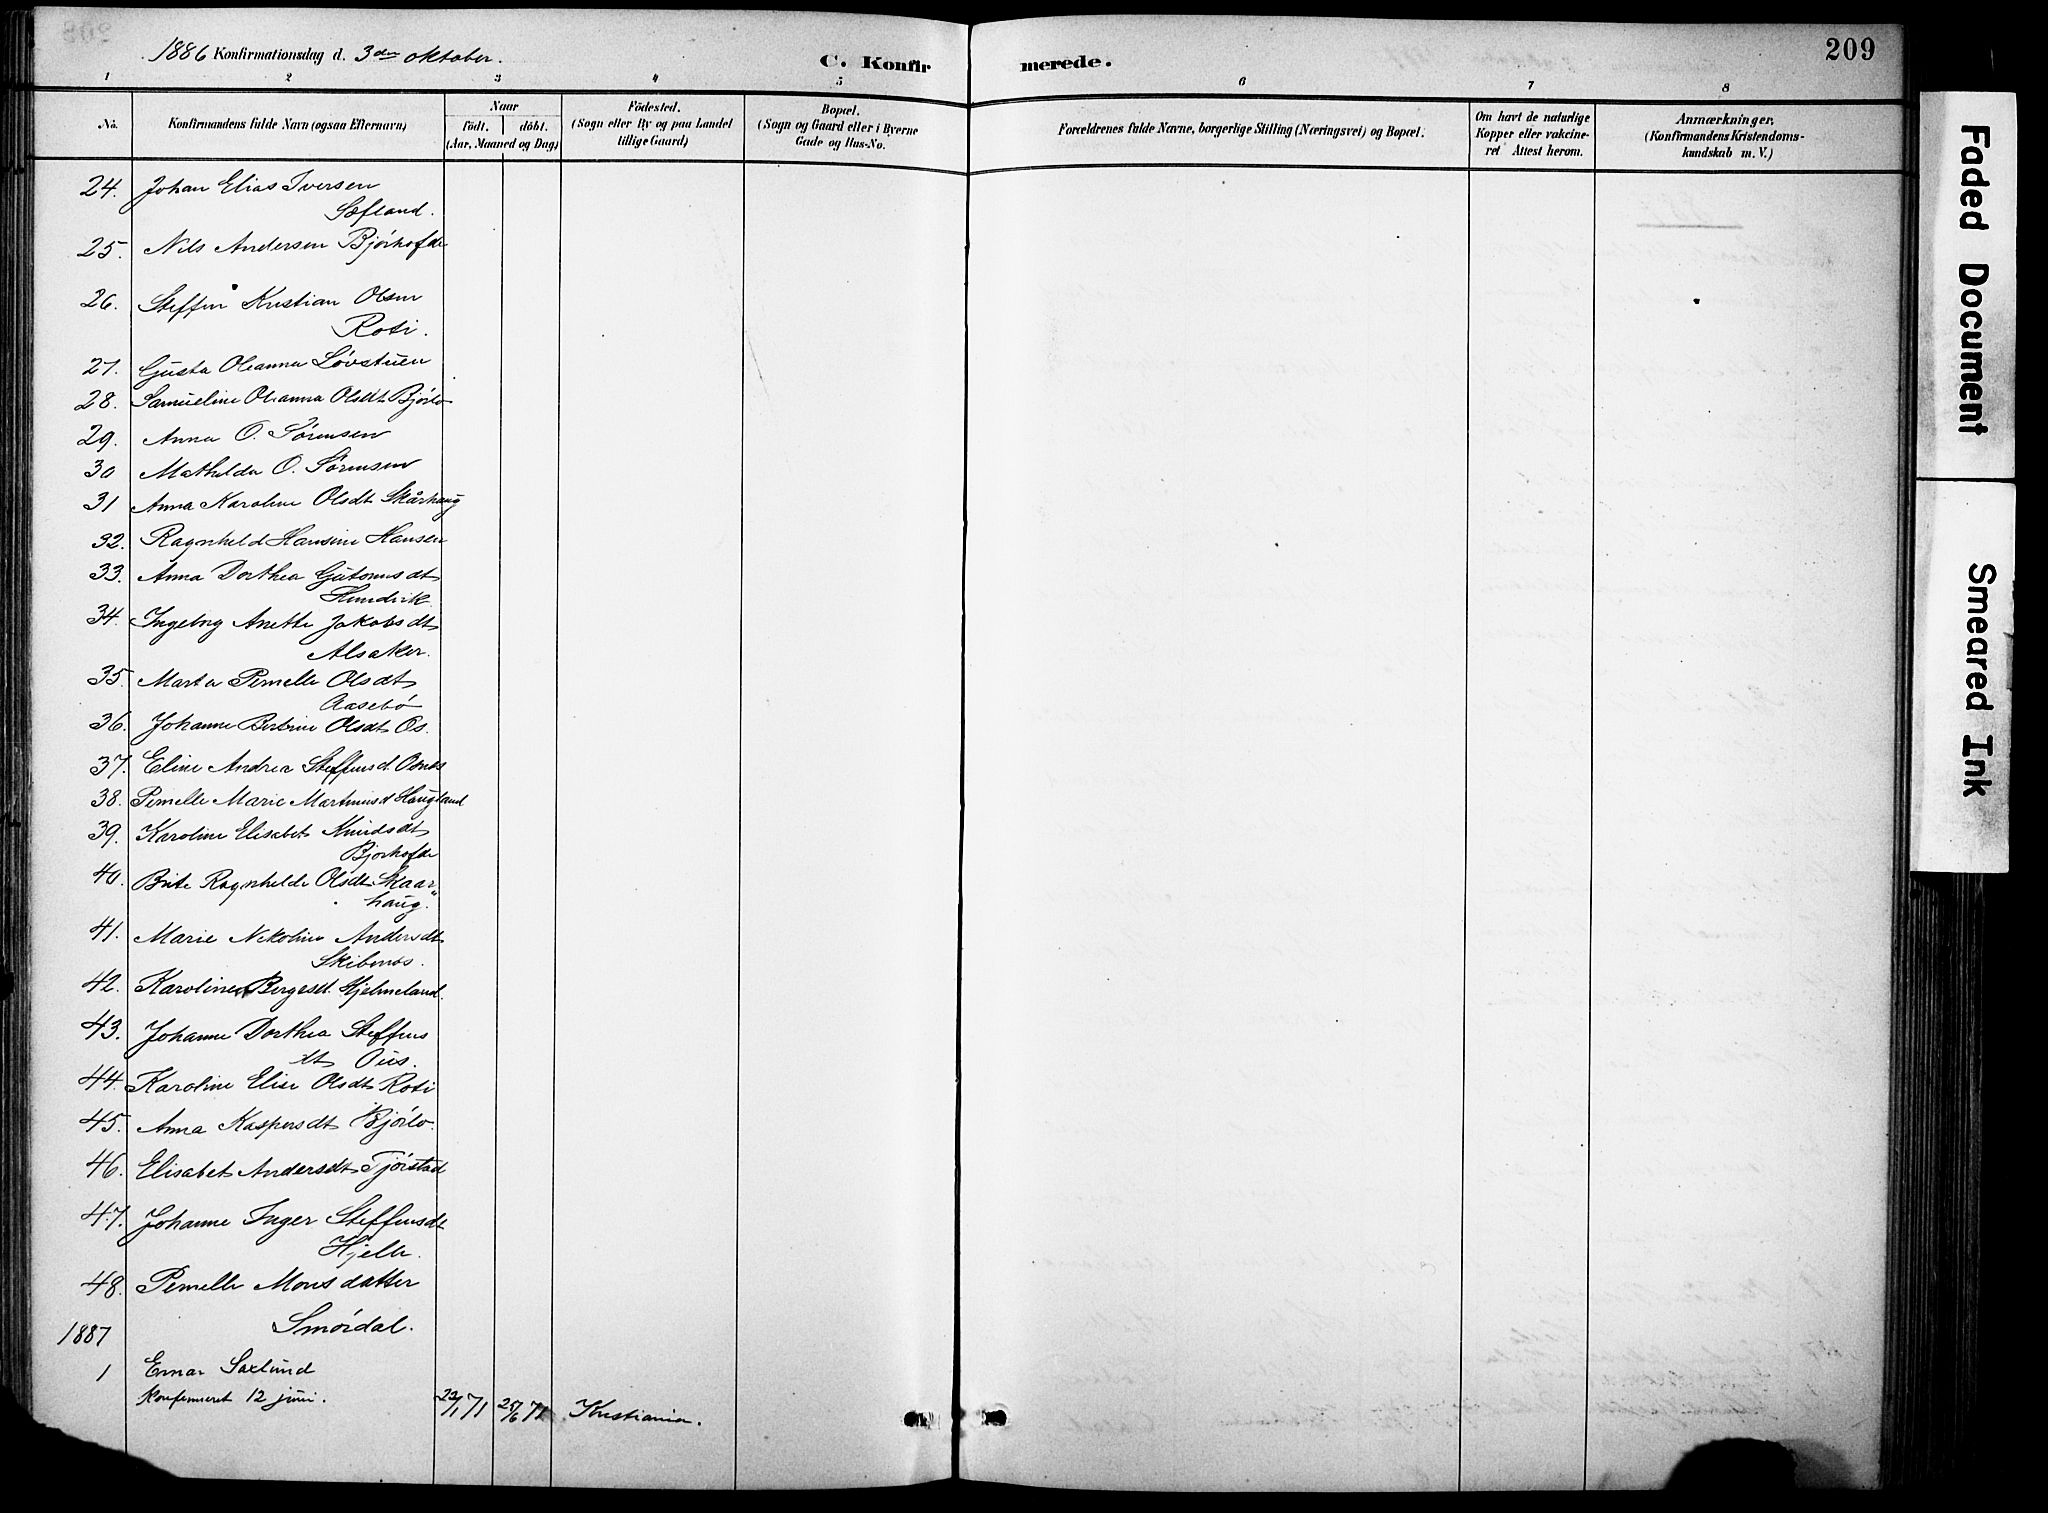 209
1886 Konfirmationsdag d. 3den oktober.
C. Konfirmerede.
1 2 3 4 5 6 7 8
No.
Konfirmandens fulde Navn (ogsaa Efternavn)
Naar
födt. döbt.
(Aar, Maaned og Dag)
Födested.
(Sogn eller By og paa Landet
tillige Gaard)
Bopæl.
(Sogn og Gaard eller i Byerne
Gade og Hus-No.
Forældrenes fulde Navne, borgerlige Stilling (Næringsvei) og Bopæl.
Om havt de naturlige
Kopper eller vakcine-
ret Attest herom.
Anmærkninger,
(Konfirmandens Kristendoms-
kundskab m. V.)
24. Johan Elias Iversen
Sæfland.
25. Nils Andersen Bjørhofde
26. Steffen Kristian Olsen
Roti.
27. Gusta Oleanna Løvstuen
28. Samueline Oleanna Olsdt Bjørlo
29. Anna O. Sørensen
30 Mathilda O. Sørensen
31 Anna Karoline Olsdt Skårhaug
32. Ragnhild Hansine Hansen
33. Anna Dorthea Gutormsdt
Hundvik
34. Ingebrg Anette Jakobsdt
Alsaker.
35. Marta Pernelle Olsdt
Aasebø
36. Johanne Bertine Olsdt Os.
37. Eline Andrea Steffensd. Osnes
38. Pernelle Marie Martinusd Haugland
39. Karoline Elisabet Knudsdt
Bjørhofde
40. Brite Ragnhilde Olsdt Skaar-
haug.
41. Marie Nikoline Andersdt
Skibenes.
42. Karoline Bergesd. Hjelmeland.
43. Johanne Dorthea Steffens
dt Ous.
44. Karoline Elise Olsdt Roti
45. Anna Kaspersdt Bjørlo.
46. Elisabet Andersdt Tjørstad
47. Johanne Inger Steffensdt
Hjelle.
48. Pernelle Monsdatter
Smørdal.
1887
1 Einar Saxlund
konfirmeret 12 juni. 22/1 71 25/6 71 Kristiania.
Faded Document
Smeared Ink